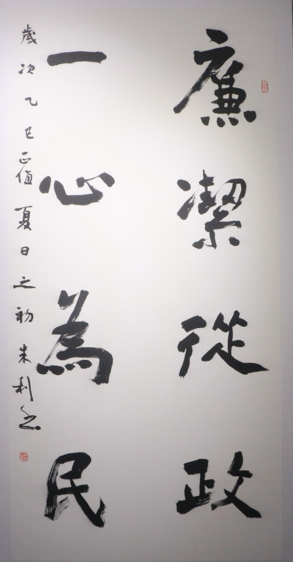 廉潔從政
一心為民
歲次乙巳正值夏日之初朱利